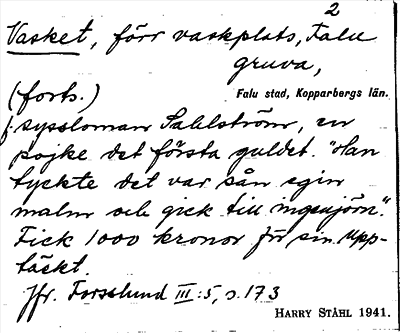 2
Vasket, förr vaskplats, Falu
gruva,
(forts.)
Falu stad, Kopparbergs län.
f. syssloman Sahlström, en
pojke det första guldet. "Han
tyckte det var sån egin
malm och gick till ingenjörn".
Fick 1000 kronor för sin upp-
täckt.
Jfr. Forsslund III:5, s. 173
HARRY STÅHL 1941.